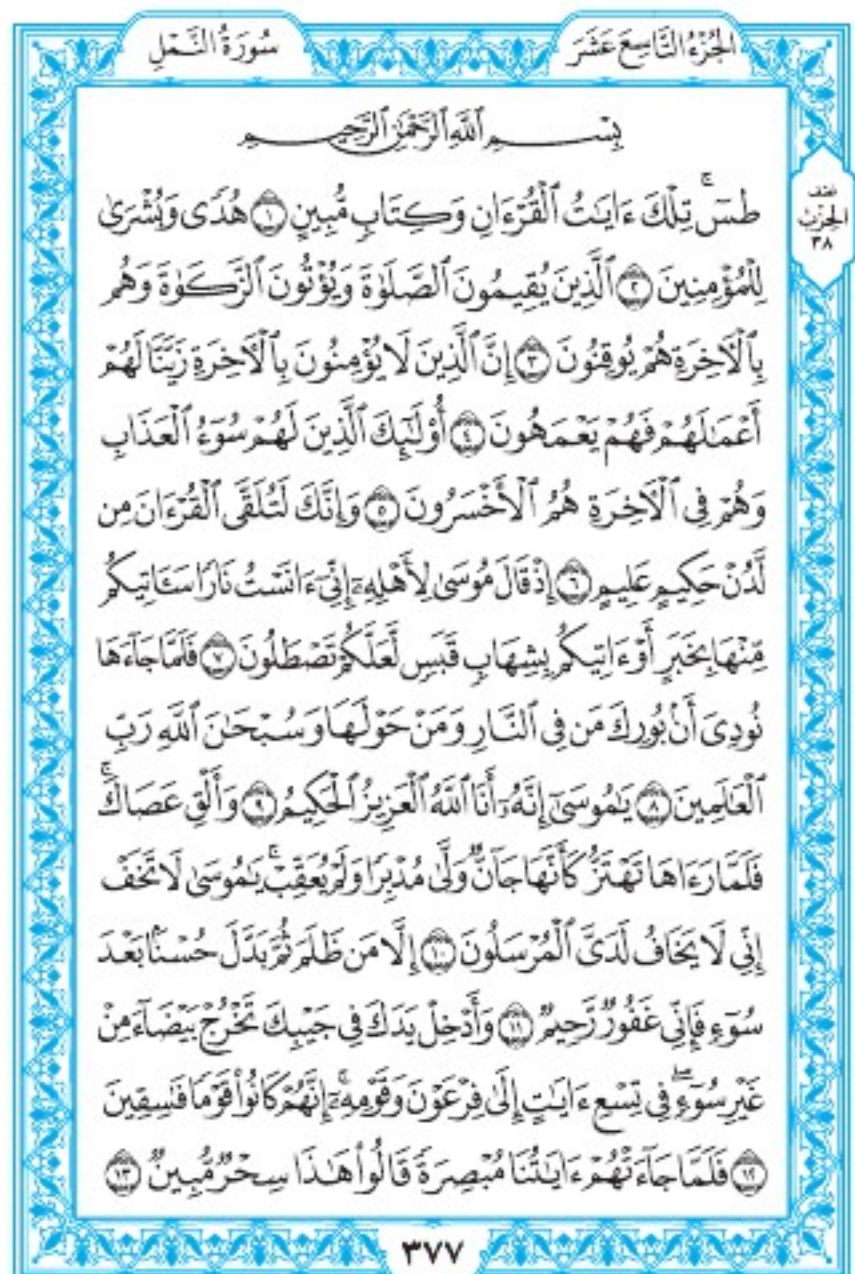 الجُزْءُ التَّاسِعَ عَشَرَ
سُورَةُ النَّمْلِ
بِسْمِ ٱللَّهِ ٱلرَّحْمَٰنِ ٱلرَّحِيمِ
طسٓۚ تِلْكَ ءَايَٰتُ ٱلْقُرْءَانِ وَكِتَابٖ مُّبِينٍ ١ هُدٗى وَبُشْرَىٰ
نصف
الحزب
٣٨
لِلْمُؤْمِنِينَ ٢ ٱلَّذِينَ يُقِيمُونَ ٱلصَّلَوٰةَ وَيُؤْتُونَ ٱلزَّكَوٰةَ وَهُم
بِٱلْأٓخِرَةِ هُمْ يُوقِنُونَ ٣ إِنَّ ٱلَّذِينَ لَا يُؤْمِنُونَ بِٱلْأٓخِرَةِ زَيَّنَّا لَهُمْ
أَعْمَٰلَهُمْ فَهُمْ يَعْمَهُونَ ٤ أُوْلَٰٓئِكَ ٱلَّذِينَ لَهُمْ سُوٓءُ ٱلْعَذَابِ
وَهُمْ فِي ٱلْأٓخِرَةِ هُمُ ٱلْأَخْسَرُونَ ٥ وَإِنَّكَ لَتُلَقَّى ٱلْقُرْءَانَ مِن
لَّدُنْ حَكِيمٍ عَلِيمٍ ٦ إِذْ قَالَ مُوسَىٰ لِأَهْلِهِۦٓ إِنِّيٓ ءَانَسْتُ نَارٗا سَـَٔاتِيكُم
مِّنْهَا بِخَبَرٍ أَوْ ءَاتِيكُم بِشِهَابٖ قَبَسٖ لَّعَلَّكُمْ تَصْطَلُونَ ٧ فَلَمَّا جَآءَهَا
نُودِيَ أَنۢ بُورِكَ مَن فِي ٱلنَّارِ وَمَنْ حَوْلَهَا وَسُبْحَٰنَ ٱللَّهِ رَبِّ
ٱلْعَٰلَمِينَ ٨ يَٰمُوسَىٰٓ إِنَّهُۥٓ أَنَا ٱللَّهُ ٱلْعَزِيزُ ٱلْحَكِيمُ ٩ وَأَلْقِ عَصَاكَۚ
فَلَمَّا رَءَاهَا تَهْتَزُّ كَأَنَّهَا جَآنّٞ وَلَّىٰ مُدْبِرٗا وَلَمْ يُعَقِّبْۚ يَٰمُوسَىٰ لَا تَخَفْ
إِنِّي لَا يَخَافُ لَدَيَّ ٱلْمُرْسَلُونَ ١٠ إِلَّا مَن ظَلَمَ ثُمَّ بَدَّلَ حُسْنَۢا بَعْدَ
سُوٓءٖ فَإِنِّي غَفُورٞ رَّحِيمٞ ١١ وَأَدْخِلْ يَدَكَ فِي جَيْبِكَ تَخْرُجْ بَيْضَآءَ مِنْ
غَيْرِ سُوٓءٖۖ فِي تِسْعِ ءَايَٰتٍ إِلَىٰ فِرْعَوْنَ وَقَوْمِهِۦٓۚ إِنَّهُمْ كَانُواْ قَوْمٗا فَٰسِقِينَ
١٢ فَلَمَّا جَآءَتْهُمْ ءَايَٰتُنَا مُبْصِرَةٗ قَالُواْ هَٰذَا سِحْرٞ مُّبِينٞ ١٣
٣٧٧